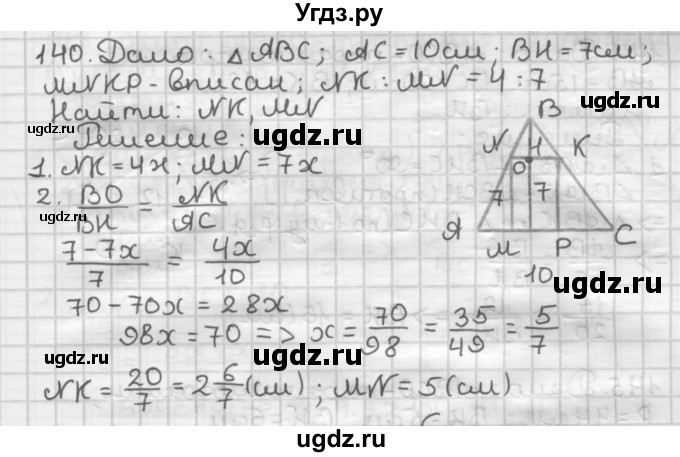 Угдз.ру
140. Дано: △ABC; AC = 10см; BH = 7см;
MNKP - вписан; NK : MN = 4 : 7
Найти: NK, MN
Решение:
1. NK = 4x; MN = 7x
2. BO/BH = NK/AC
(7-7x)/7 = 4x/10
70 - 70x = 28x
98x = 70 => x = 70/98 = 35/49 = 5/7
NK = 20/7 = 2 6/7 (см); MN = 5 (см)
B
N H K
O
7 7
A M P C
10
ugdz.ru
ugdz.ru
ugdz.ru
ugdz.ru
ugdz.ru
ugdz.ru
ugdz.ru
ugdz.ru
ugdz.ru